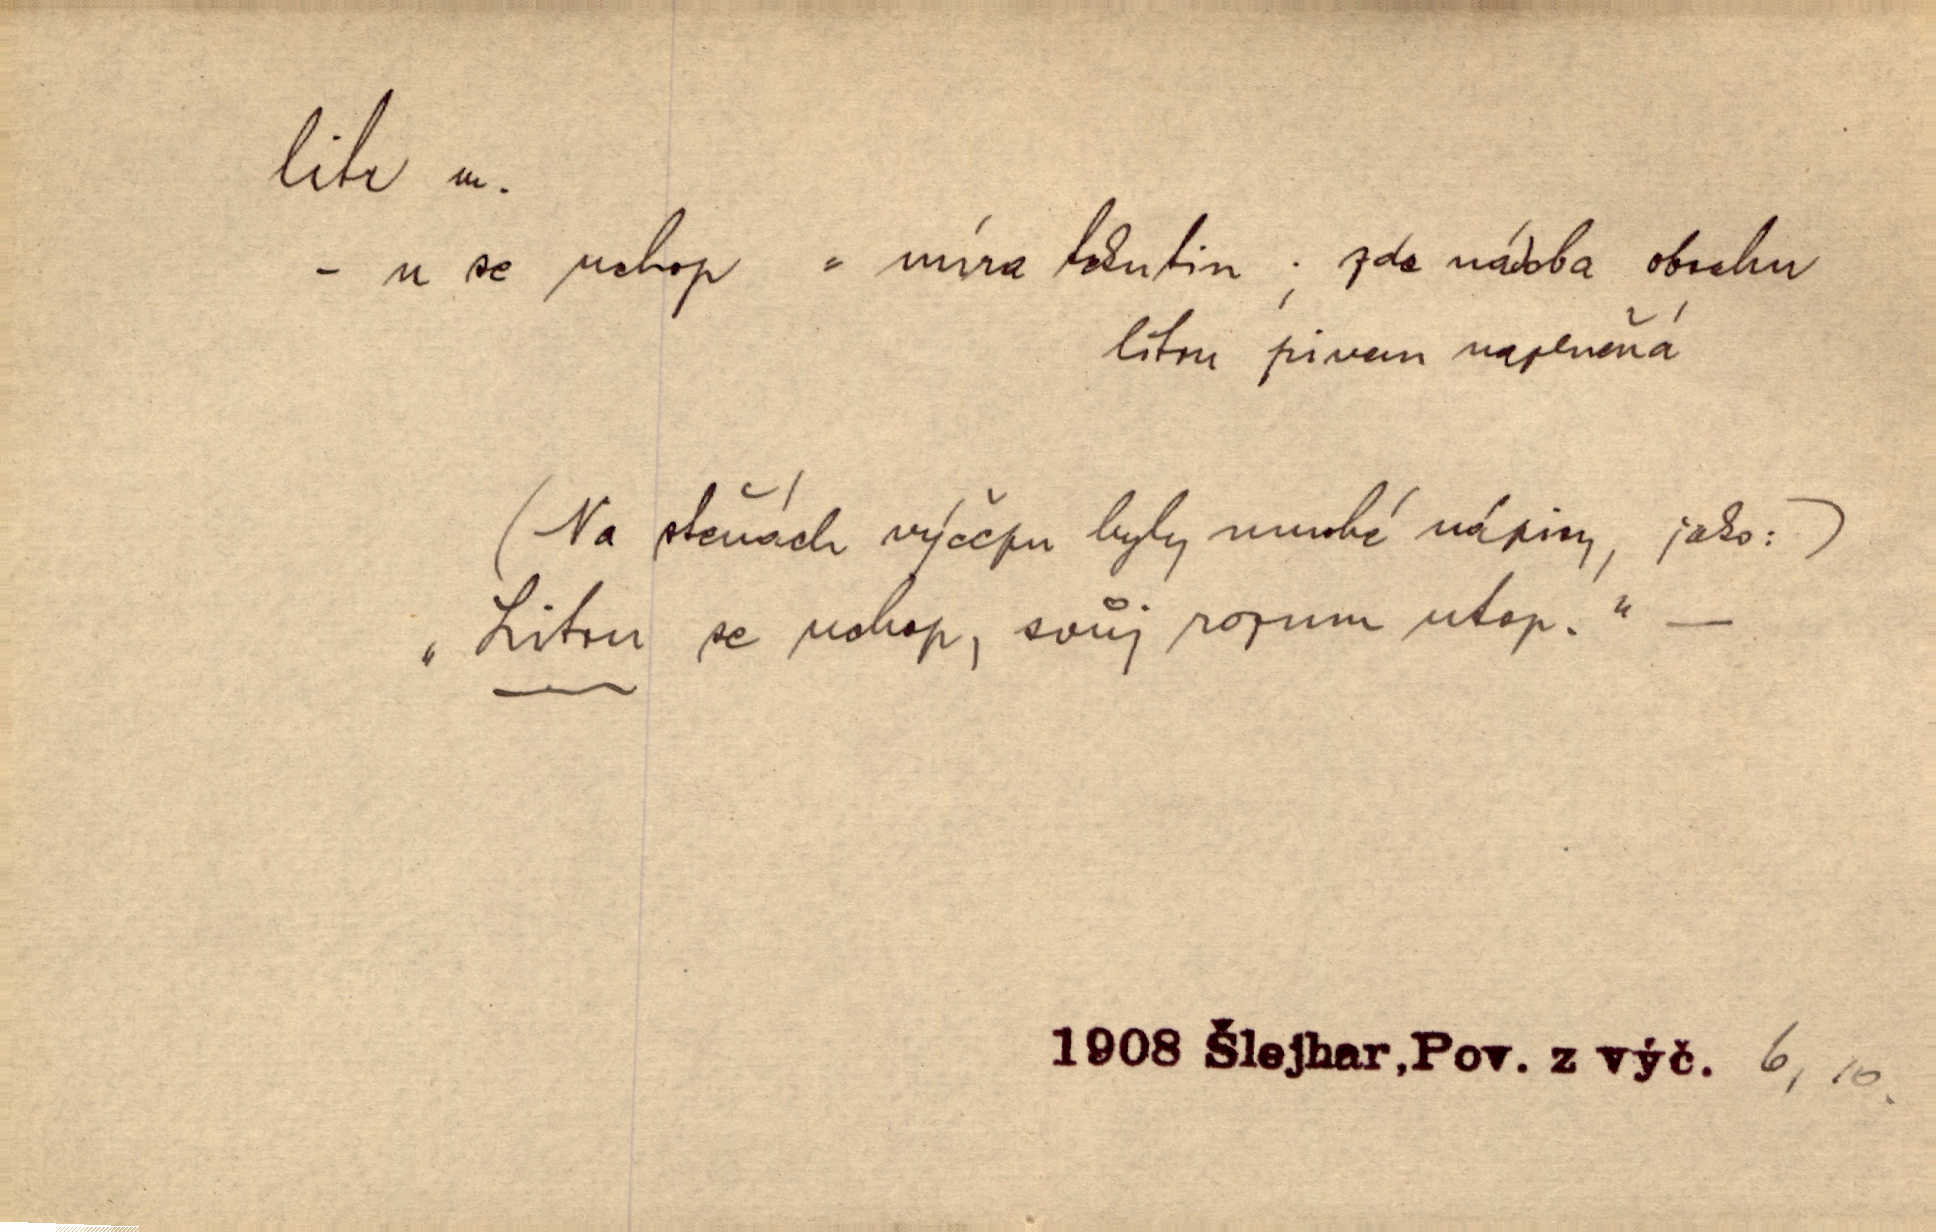 litr m.
- u se uchop = míra tekutin ; zde nádoba obsahu
litru pivem naplněná
(Na stěnách výčepu byly mnohé nápisy, jako:)
„Litru se uchop, svůj rozum utop.“ —
1908 Šlejhar, Pov. z výč. 6, 10.